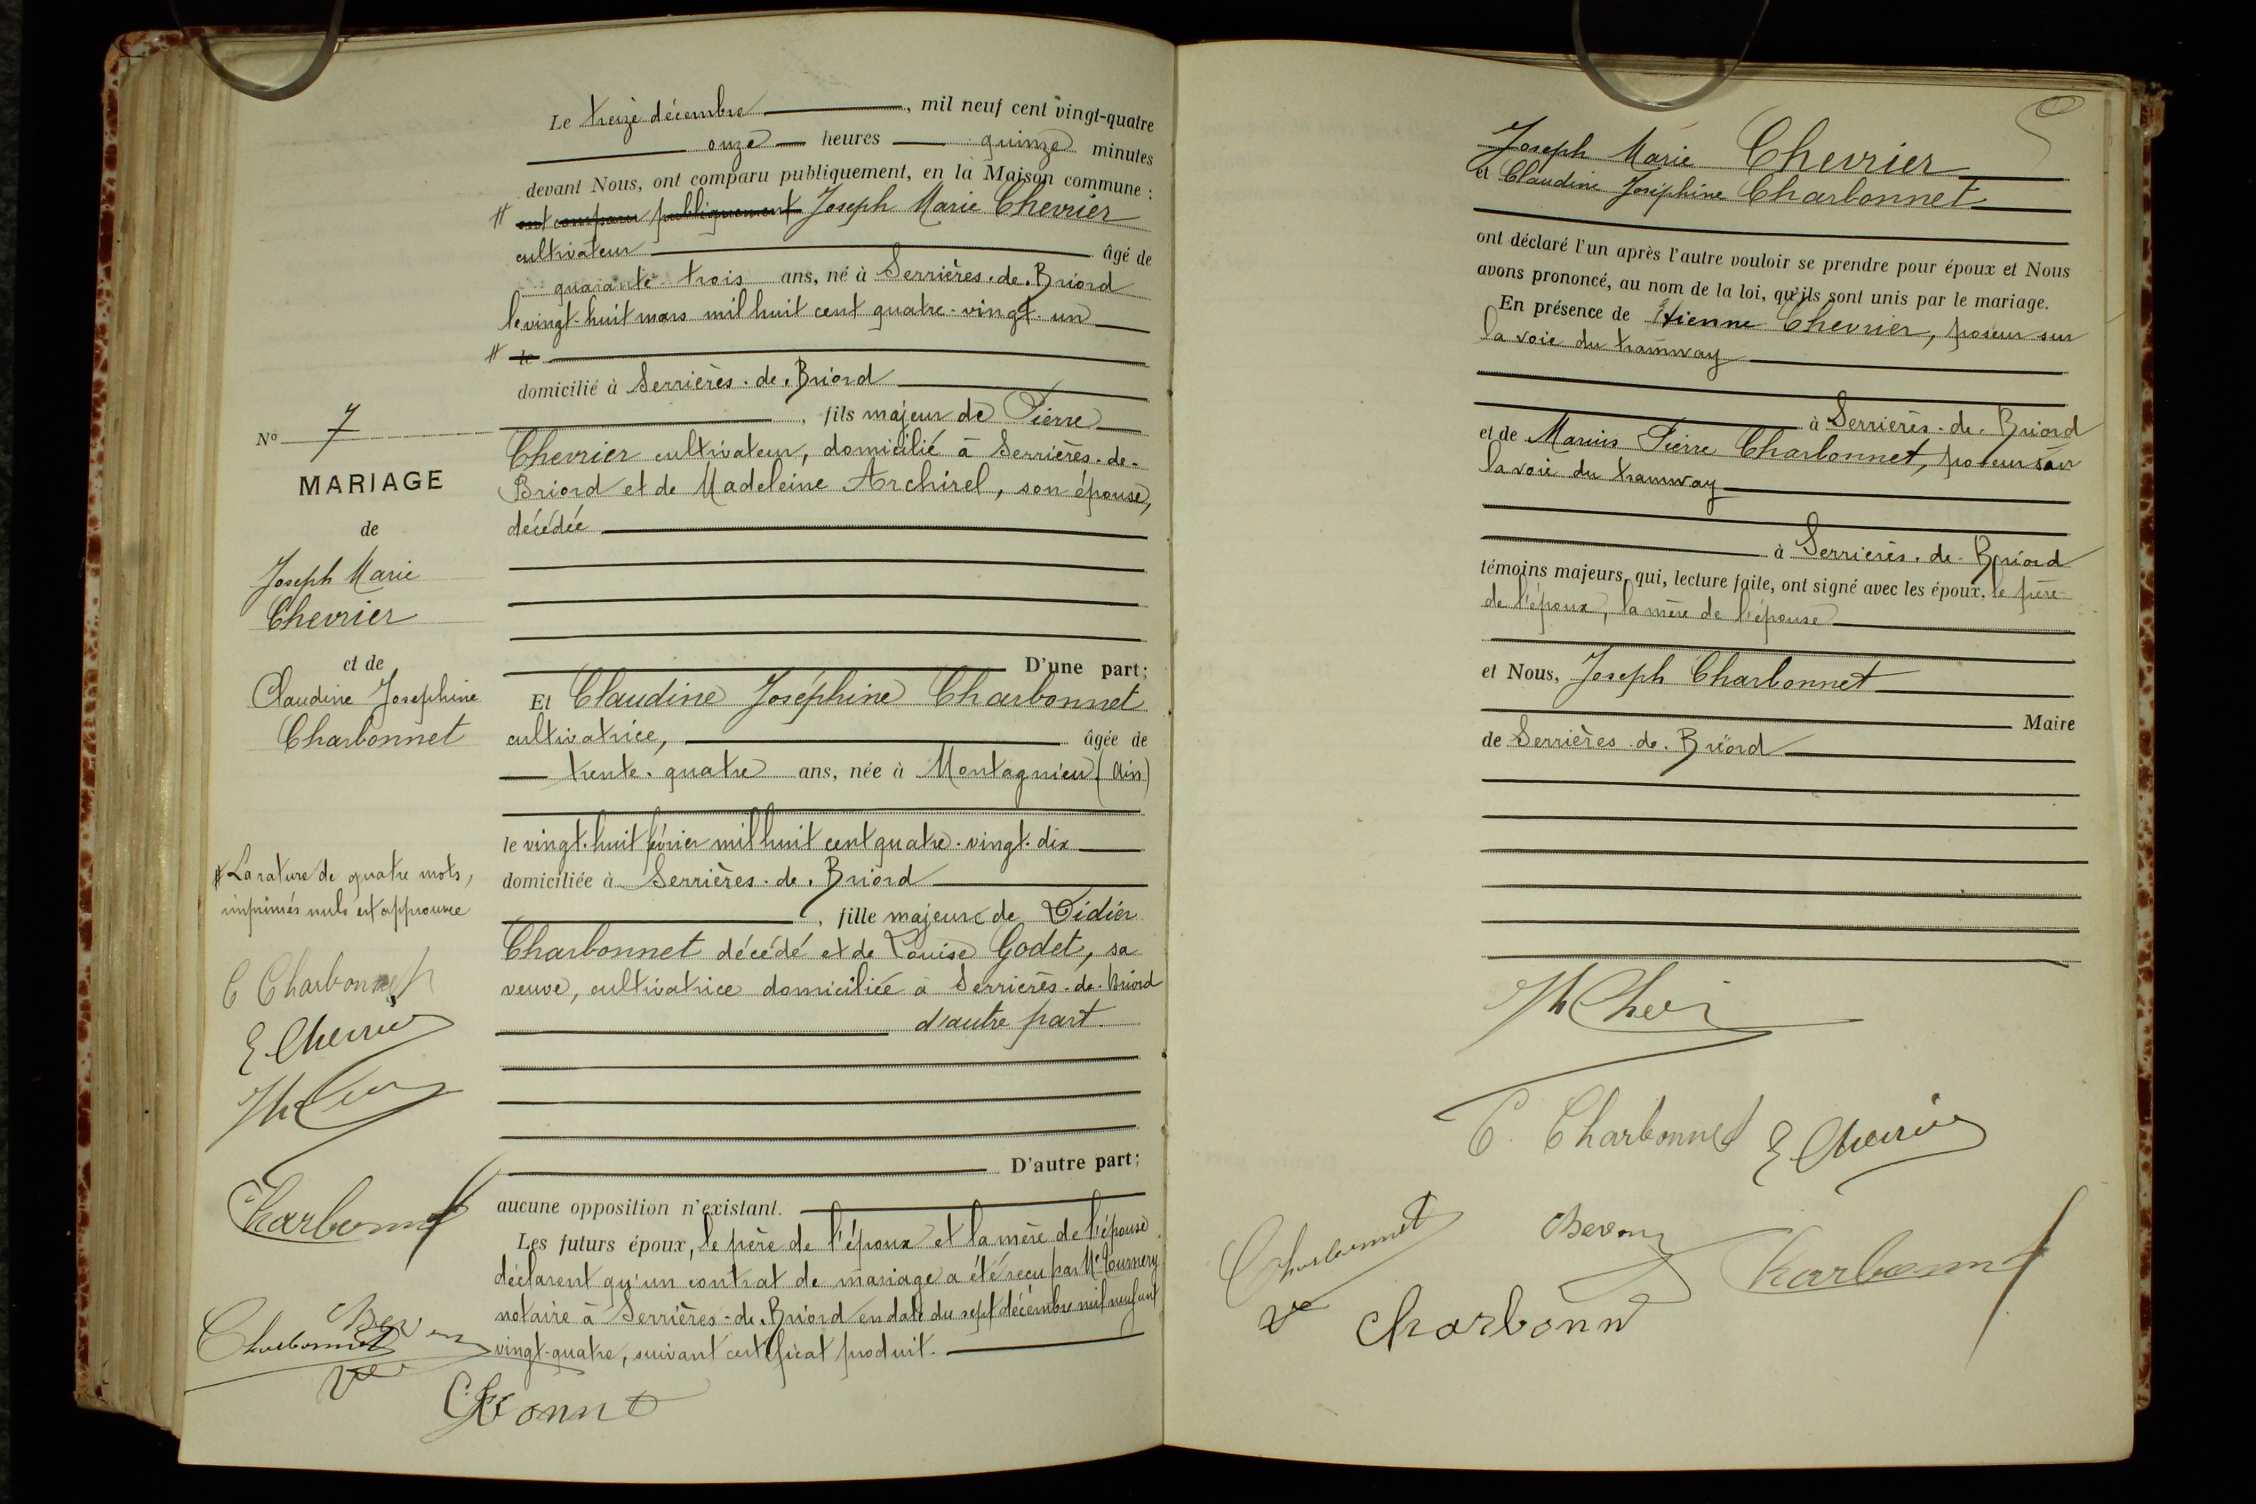 Le treize décembre, mil neuf cent vingt-quatre
onze heures quinze minutes
devant Nous, ont comparu publiquement, en la Maison commune :
# ont comparu publiquement Joseph Marie Chevrier
cultivateur âgé de
quarante-trois ans, né à Serrières-de-Briord
le vingt-huit mars mil huit cent quatre-vingt-un
# le
domicilié à Serrières-de-Briord
, fils majeur de Pierre
Chevrier cultivateur, domicilié à Serrières-de-
Briord et de Madeleine Archirel, son épouse,
décédée
D'une part;
Et Claudine Joséphine Charbonnet
cultivatrice, âgée de
trente-quatre ans, née à Montagnieu (Ain)
le vingt-huit février mil huit cent quatre-vingt-dix
domiciliée à Serrières-de-Briord
, fille majeure de Didier
Charbonnet décédé et de Louise Godet, sa
veuve, cultivatrice domiciliée à Serrières-de-Briord
d'autre part.
D'autre part;
aucune opposition n'existant.
Les futurs époux, le père de l'époux et la mère de l'épouse
déclarent qu'un contrat de mariage a été reçu par Me Tournery
notaire à Serrières-de-Briord en date du sept décembre mil neuf cent
vingt-quatre, suivant certificat produit.
No 7
MARIAGE
de
Joseph Marie
Chevrier
et de
Claudine Josephine
Charbonnet
# La rature de quatre mots,
imprimés nuls est approuvée
C Charbonnet
E Chevrier
Charbonnet
Charbonnet
Ve
Joseph Marie Chevrier
et Claudine Joséphine Charbonnet
ont déclaré l'un après l'autre vouloir se prendre pour époux et Nous
avons prononcé, au nom de la loi, qu'ils sont unis par le mariage.
En présence de Etienne Chevrier, poseur sur
la voie du tramway
à Serrières-de-Briord
et de Marius Pierre Charbonnet, poseur sur
la voie du tramway
à Serrières-de-Briord
témoins majeurs, qui, lecture faite, ont signé avec les époux, le père
de l'époux, la mère de l'épouse
et Nous, Joseph Charbonnet
Maire
de Serrières-de-Briord
C. Charbonnet E Chevrier
Charbonnet
Ve
Charbonnet
Charbonnet